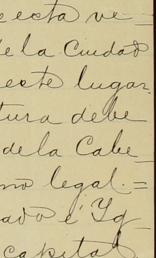 ecta ve-
de la Ciudad
este lugar.
tura debe
de la Cabe
mo legal.=
ado é Yg
capital